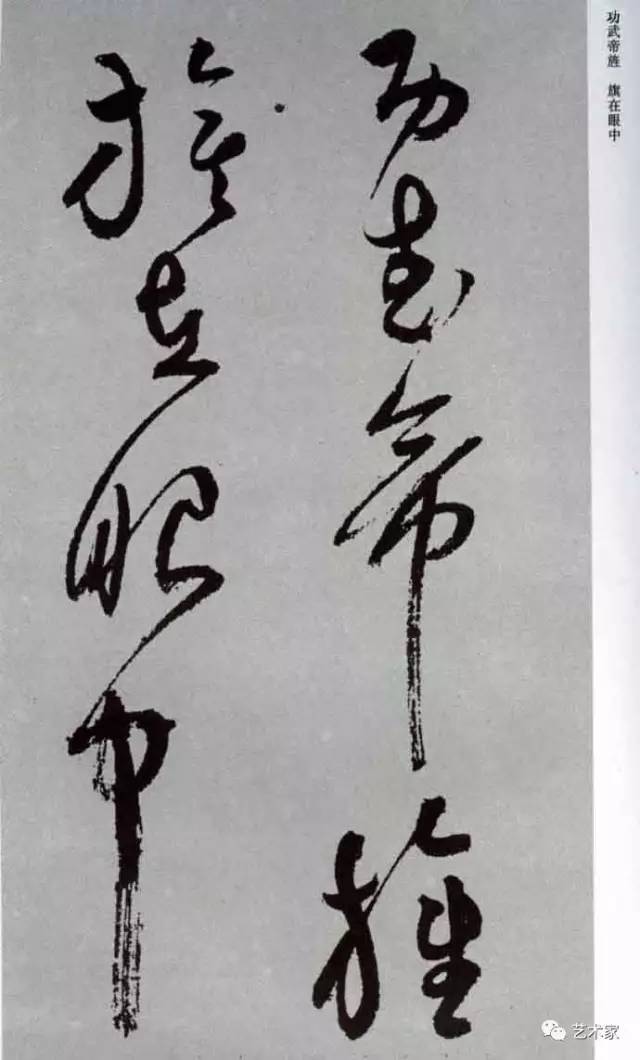 功武帝旌
旗在眼中
功武帝旌 旗在眼中
艺术家